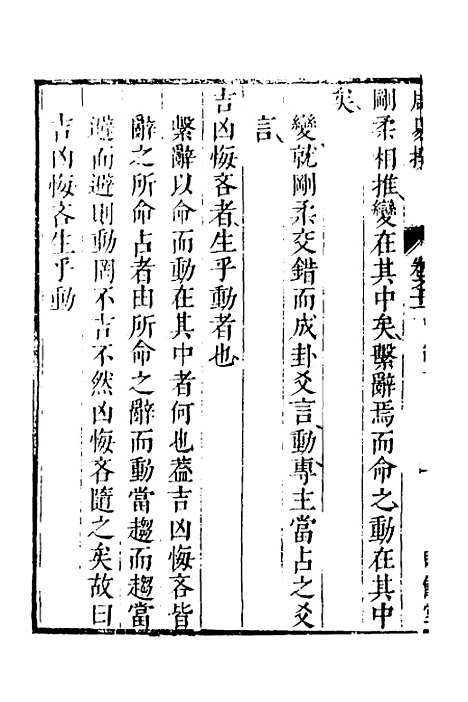 剛柔相推變在其中矣繫辭焉而命之動在其中
矣
變就剛柔交錯而成卦爻言動專主當占之爻
言
吉凶悔吝者生乎動者也
繫辭以命而動在其中者何也葢吉凶悔吝皆
辭之所命占者由所命之辭而動當趨而趨當
避而避則動罔不吉不然凶悔吝隨之矣故曰
吉凶悔吝生乎動